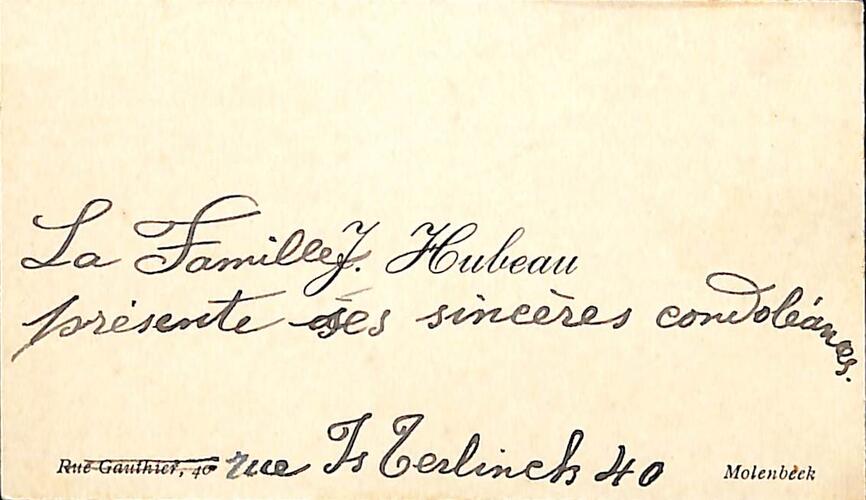 La Famille J. Hubeau
présente ses sincères condoléances.
Rue Gauthier, 40 rue Is Terlinck 40 Molenbeek